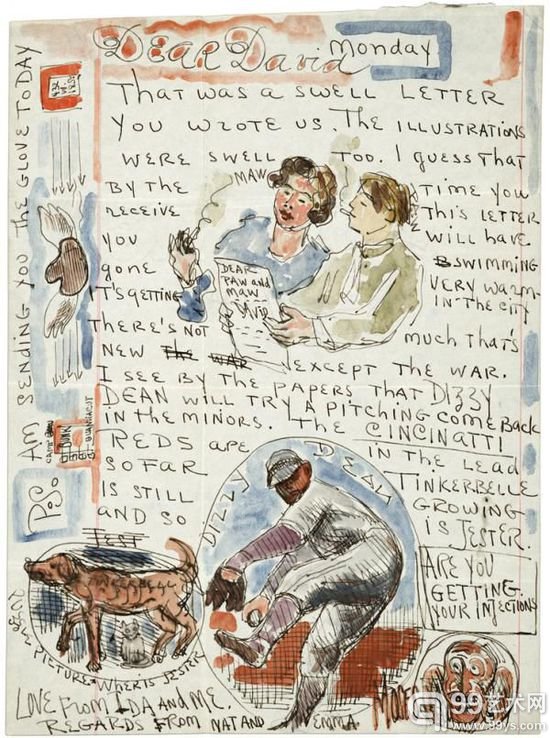 DEAR David
Monday
THAT WAS A SWELL LETTER
YOU WROTE US. THE ILLUSTRATIONS
WERE SWELL TOO. I GUESS THAT
BY THE TIME YOU
RECEIVE THIS LETTER
YOU WILL HAVE
gone SWIMMING
IT'S GETTING VERY WARM
IN THE CITY
THERE'S NOT much THAT'S
NEW THE WAR EXCEPT THE WAR.
I SEE BY THE PAPERS THAT DIZZY
DEAN WILL TRY A PITCHING COMEBACK
IN THE MINORS. THE CINCINATTI
REDS ARE IN THE LEAD
SO FAR TINKERBELLE
IS STILL GROWING
AND SO IS JESTER.
MAW
DEAR
PAW AND
MAW
DAVID
DIZZY DEAN
ARE YOU
GETTING
YOUR INJECTIONS
TINKERBELLE
PICTURE WHERE IS JESTER
LOVE FROM IDA AND ME.
REGARDS FROM NAT AND EMMA.
P.S. AM SENDING YOU THE GLOVE TODAY
99艺术网
www.99ys.com